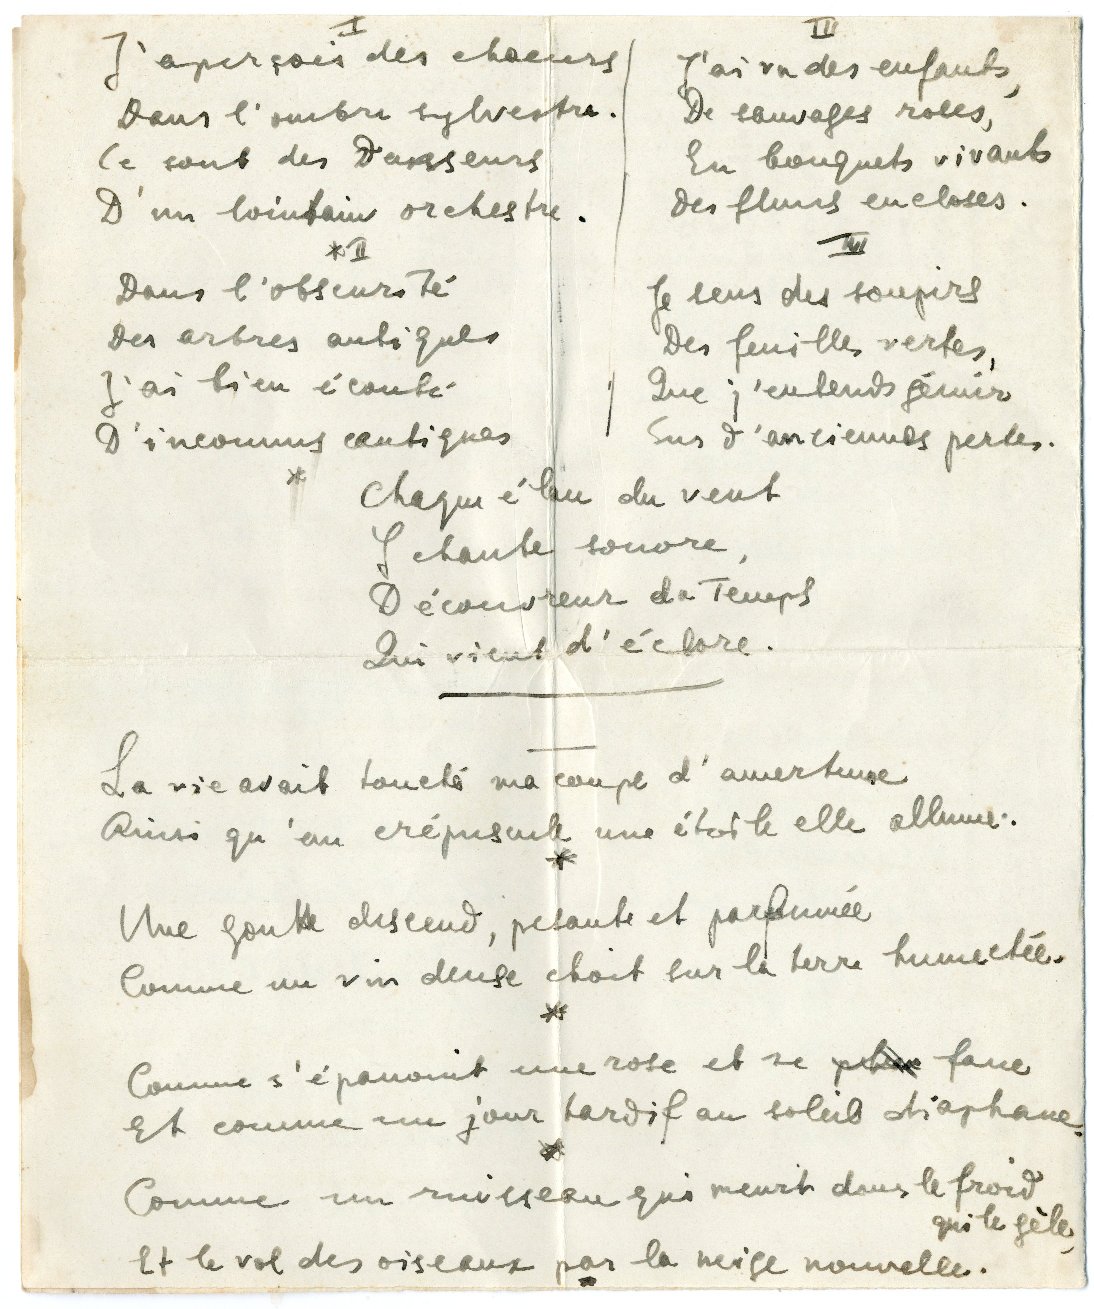 I
J'aperçois des choeurs
Dans l'ombre sylvestre.
Ce sont des Danseurs
D'un lointain orchestre.
* II
Dans l'obscurité
Des arbres antiques
J'ai bien écouté
D'inconnus cantiques
*
III
J'ai vu des enfants,
De sauvages roses,
En bouquets vivants
Des fleurs encloses.
IV
Je sens des soupirs
Des feuilles vertes,
Que j'entends gémir
Sur d'anciennes pertes.
Chaque élan du vent
Y chante sonore,
Découvreur du Temps
Qui vient d'éclore.
La vie avait touché ma coupe d'amertume
Ainsi qu'au crépuscule une étoile elle allume.
*
Une goutte descend, pesante et parfumée
Comme un vin dense choit sur la terre humectée.
*
Comme s'épanouit une rose et se fane
Et comme un jour tardif au soleil diaphane.
*
Comme un ruisseau qui meurt dans le froid
qui le gèle,
Et le vol des oiseaux par la neige nouvelle.